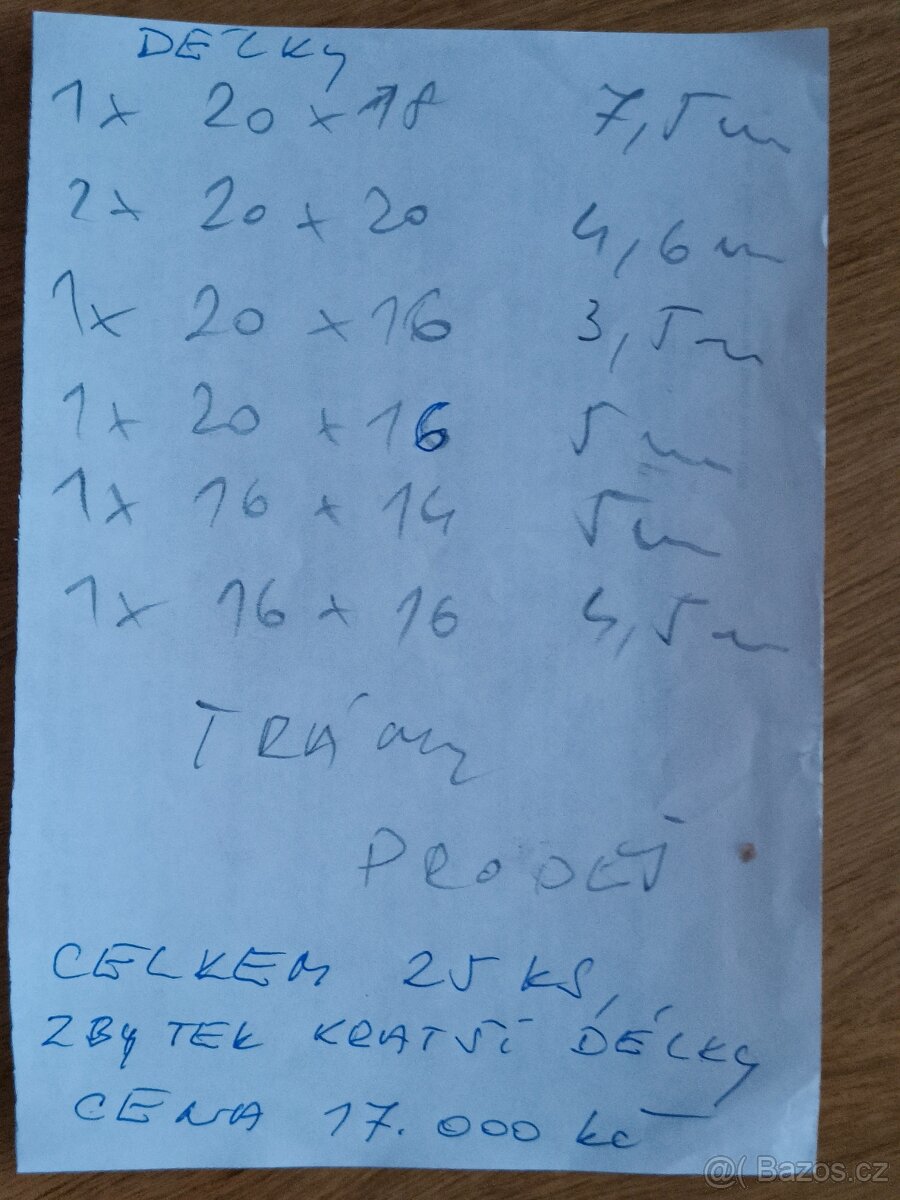 DÉLKY
1x 20 x 18 7,5 m
2x 20 x 20 4,6 m
1x 20 x 16 3,5 m
1x 20 x 16 5 m
1x 16 x 14 5 m
1x 16 x 16 4,5 m
TRÁMY
PRODEJ
CELKEM 25 KS,
ZBYTEK KRATŠÍ DÉLKY
CENA 17.000 kč
@( Bazos.cz